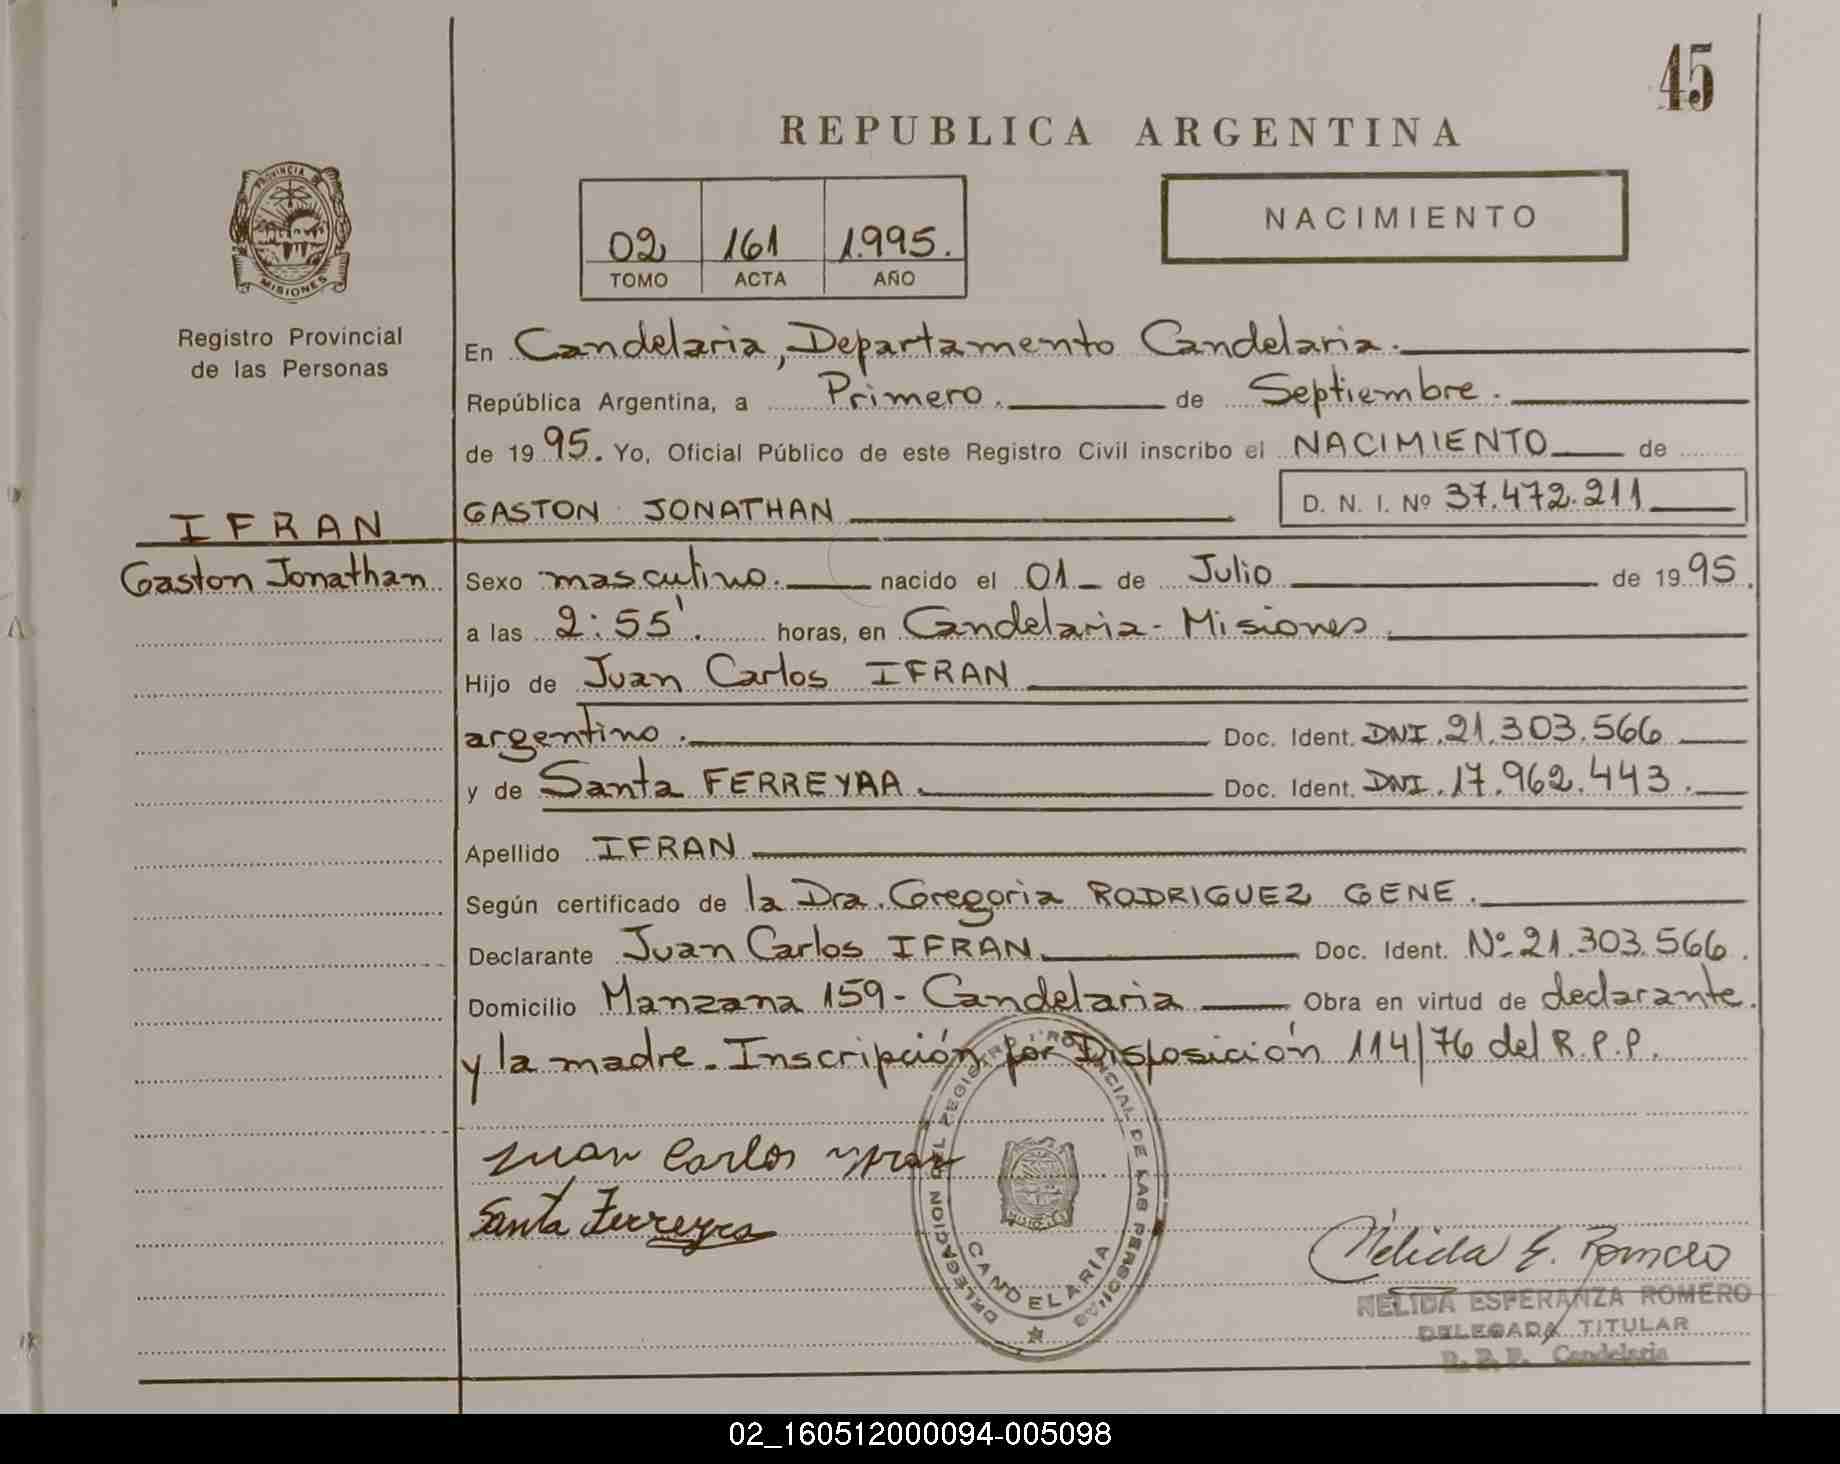 45
REPUBLICA ARGENTINA
PROVINCIA DE
MISIONES
Registro Provincial
de las Personas
02 161 1.995.
TOMO ACTA AÑO
NACIMIENTO
En Candelaria, Departamento Candelaria.
República Argentina, a Primero. de Septiembre.
de 19 95. Yo, Oficial Público de este Registro Civil inscribo el NACIMIENTO de
GASTON JONATHAN D. N. I. Nº 37.472.211
IFRAN
Gaston Jonathan
Sexo masculino. nacido el 01 de Julio de 19 95.
a las 2:55'. horas, en Candelaria - Misiones.
Hijo de Juan Carlos IFRAN
argentino. Doc. Ident. DNI. 21.303.566
y de Santa FERREYRA. Doc. Ident. DNI. 17.962.443.
Apellido IFRAN
Según certificado de la Dra. Gregoria RODRIGUEZ GENE.
Declarante Juan Carlos IFRAN Doc. Ident. Nº 21.303.566.
Domicilio Manzana 159 - Candelaria Obra en virtud de declarante
y la madre. Inscripción por Disposición 114/76 del R.P.P.
Juan Carlos Yfran
Santa Ferreyra
DELEGACION DEL REGISTRO PROVINCIAL DE LAS PERSONAS
CANDELARIA
Nélida E. Romero
NELIDA ESPERANZA ROMERO
DELEGADA TITULAR
R. P. P. Candelaria
02_160512000094-005098